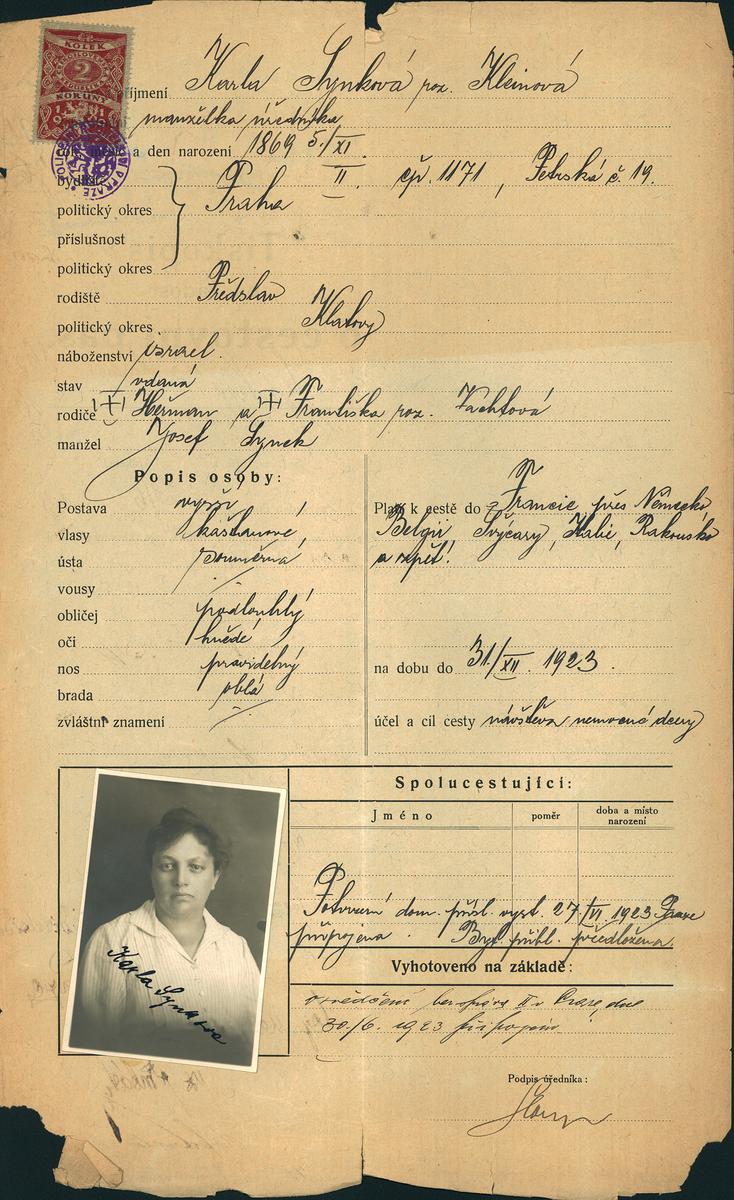 KOLEK
2
KORUNY
jmení Karla Synková roz. Kleinová
manželka úředníka
a den narození 1869 5./XI.
bydliště II. čp. 1171, Petrská č. 19.
politický okres Praha
příslušnost
politický okres
rodiště Předslav
politický okres Klatovy
náboženství israel.
stav vdaná
rodiče Heřman a Františka roz. Vachtová
manžel Josef Synek
Popis osoby:
Postava vyšší
vlasy kaštanové,
ústa souměrná
vousy
obličej podlouhlý
oči hnědé
nos pravidelný
brada oblá
zvláštní znamení
Platí k cestě do Francie přes Německo
Belgii, Švýcary, Italii, Rakousko
a zpět!
na dobu do 31./XII. 1923.
účel a cíl cesty návštěva nemocné dcery
Spolucestující:
Jméno poměr doba a místo narození
Potvrzení dom. přísl. vyst. 27/VI. 1923 Praze
připojena. Byt. přihl. předložena.
Vyhotoveno na základě:
osvědčení berní správy II v Praze, dne
30./6. 1923 připojeno
Podpis úředníka:
Karla Synkova